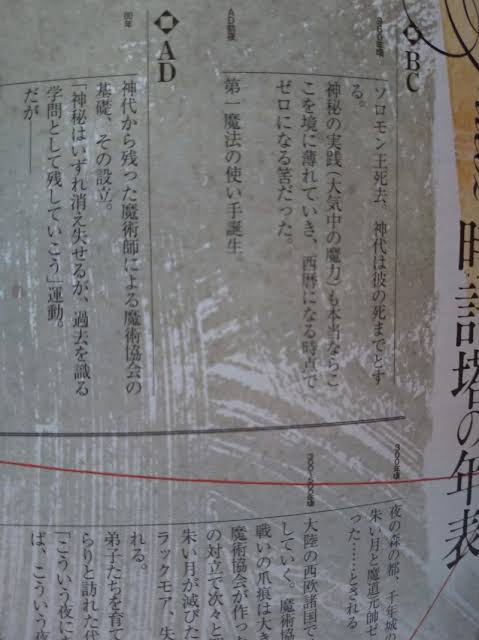 時計塔の年表
◆BC
ソロモン王死去。神代は彼の死までとす
る。
神秘の実践（大気中の魔力）も本当ならこ
こを境に薄れていき、西暦になる時点で
ゼロになる筈だった。
AD前後
第一魔法の使い手誕生。
◆AD
80年
神代から残った魔術師による魔術協会の
基礎、その設立。
「神秘はいずれ消え失せるが、過去を識る
学問として残していこう」運動。
だが――
夜の森の都、千年城の
朱い月と魔道元帥が
った……とされる。
大陸の西欧諸国で
していく。魔術協
戦いの爪痕は大き
魔術協会が作っ
の対立で次々と
朱い月が滅びた
ラックモア、失
れる。
弟子たちを育て
らりと訪れた代
「こういう夜に
ば、こういう夜